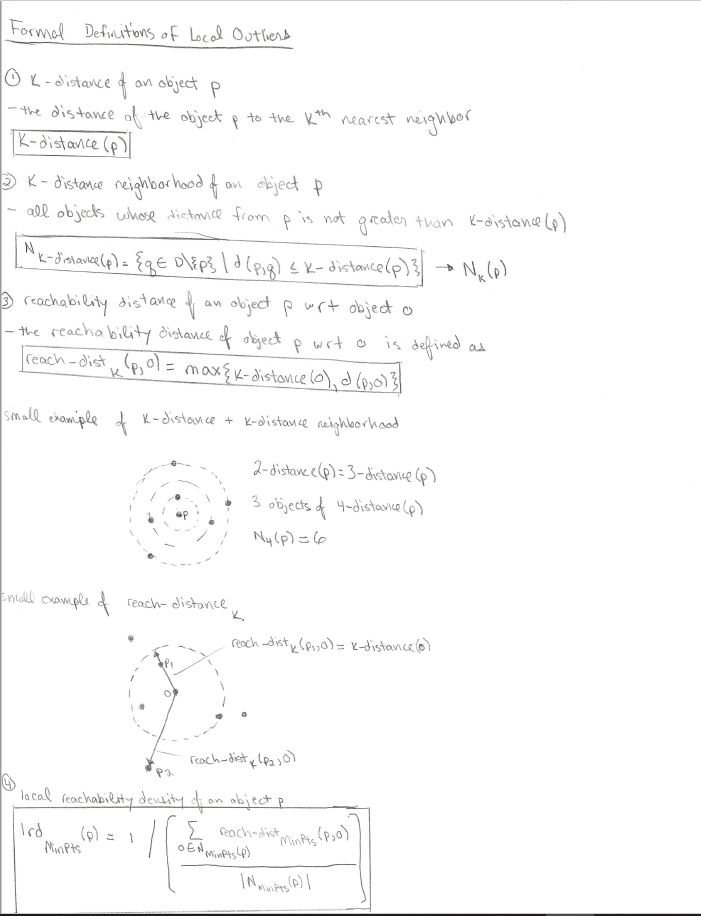 Formal Definitions of Local Outliers
① K-distance of an object p
- the distance of the object p to the Kth nearest neighbor
K-distance(p)
② K-distance neighborhood of an object p
- all objects whose distance from p is not greater than K-distance(p)
N K-distance(p) = {q ∈ D\{p} | d(p,q) ≤ K-distance(p)} → N_K(p)
③ reachability distance of an object p wrt object o
- the reachability distance of object p wrt o is defined as
reach-dist_K(p,o) = max{K-distance(o), d(p,o)}
small example of K-distance + K-distance neighborhood
2-distance(p)=3-distance(p)
3 objects of 4-distance(p)
N_4(p)=6
p
small example of reach-distance_K
reach-dist_K(p1,o) = K-distance(o)
p1
o
reach-dist_K(p2,o)
p2
④ local reachability density of an object p
lrd_MinPts(p) = 1 / ( ∑ o∈N_MinPts(p) reach-dist_MinPts(p,o)
|N_MinPts(p)| )